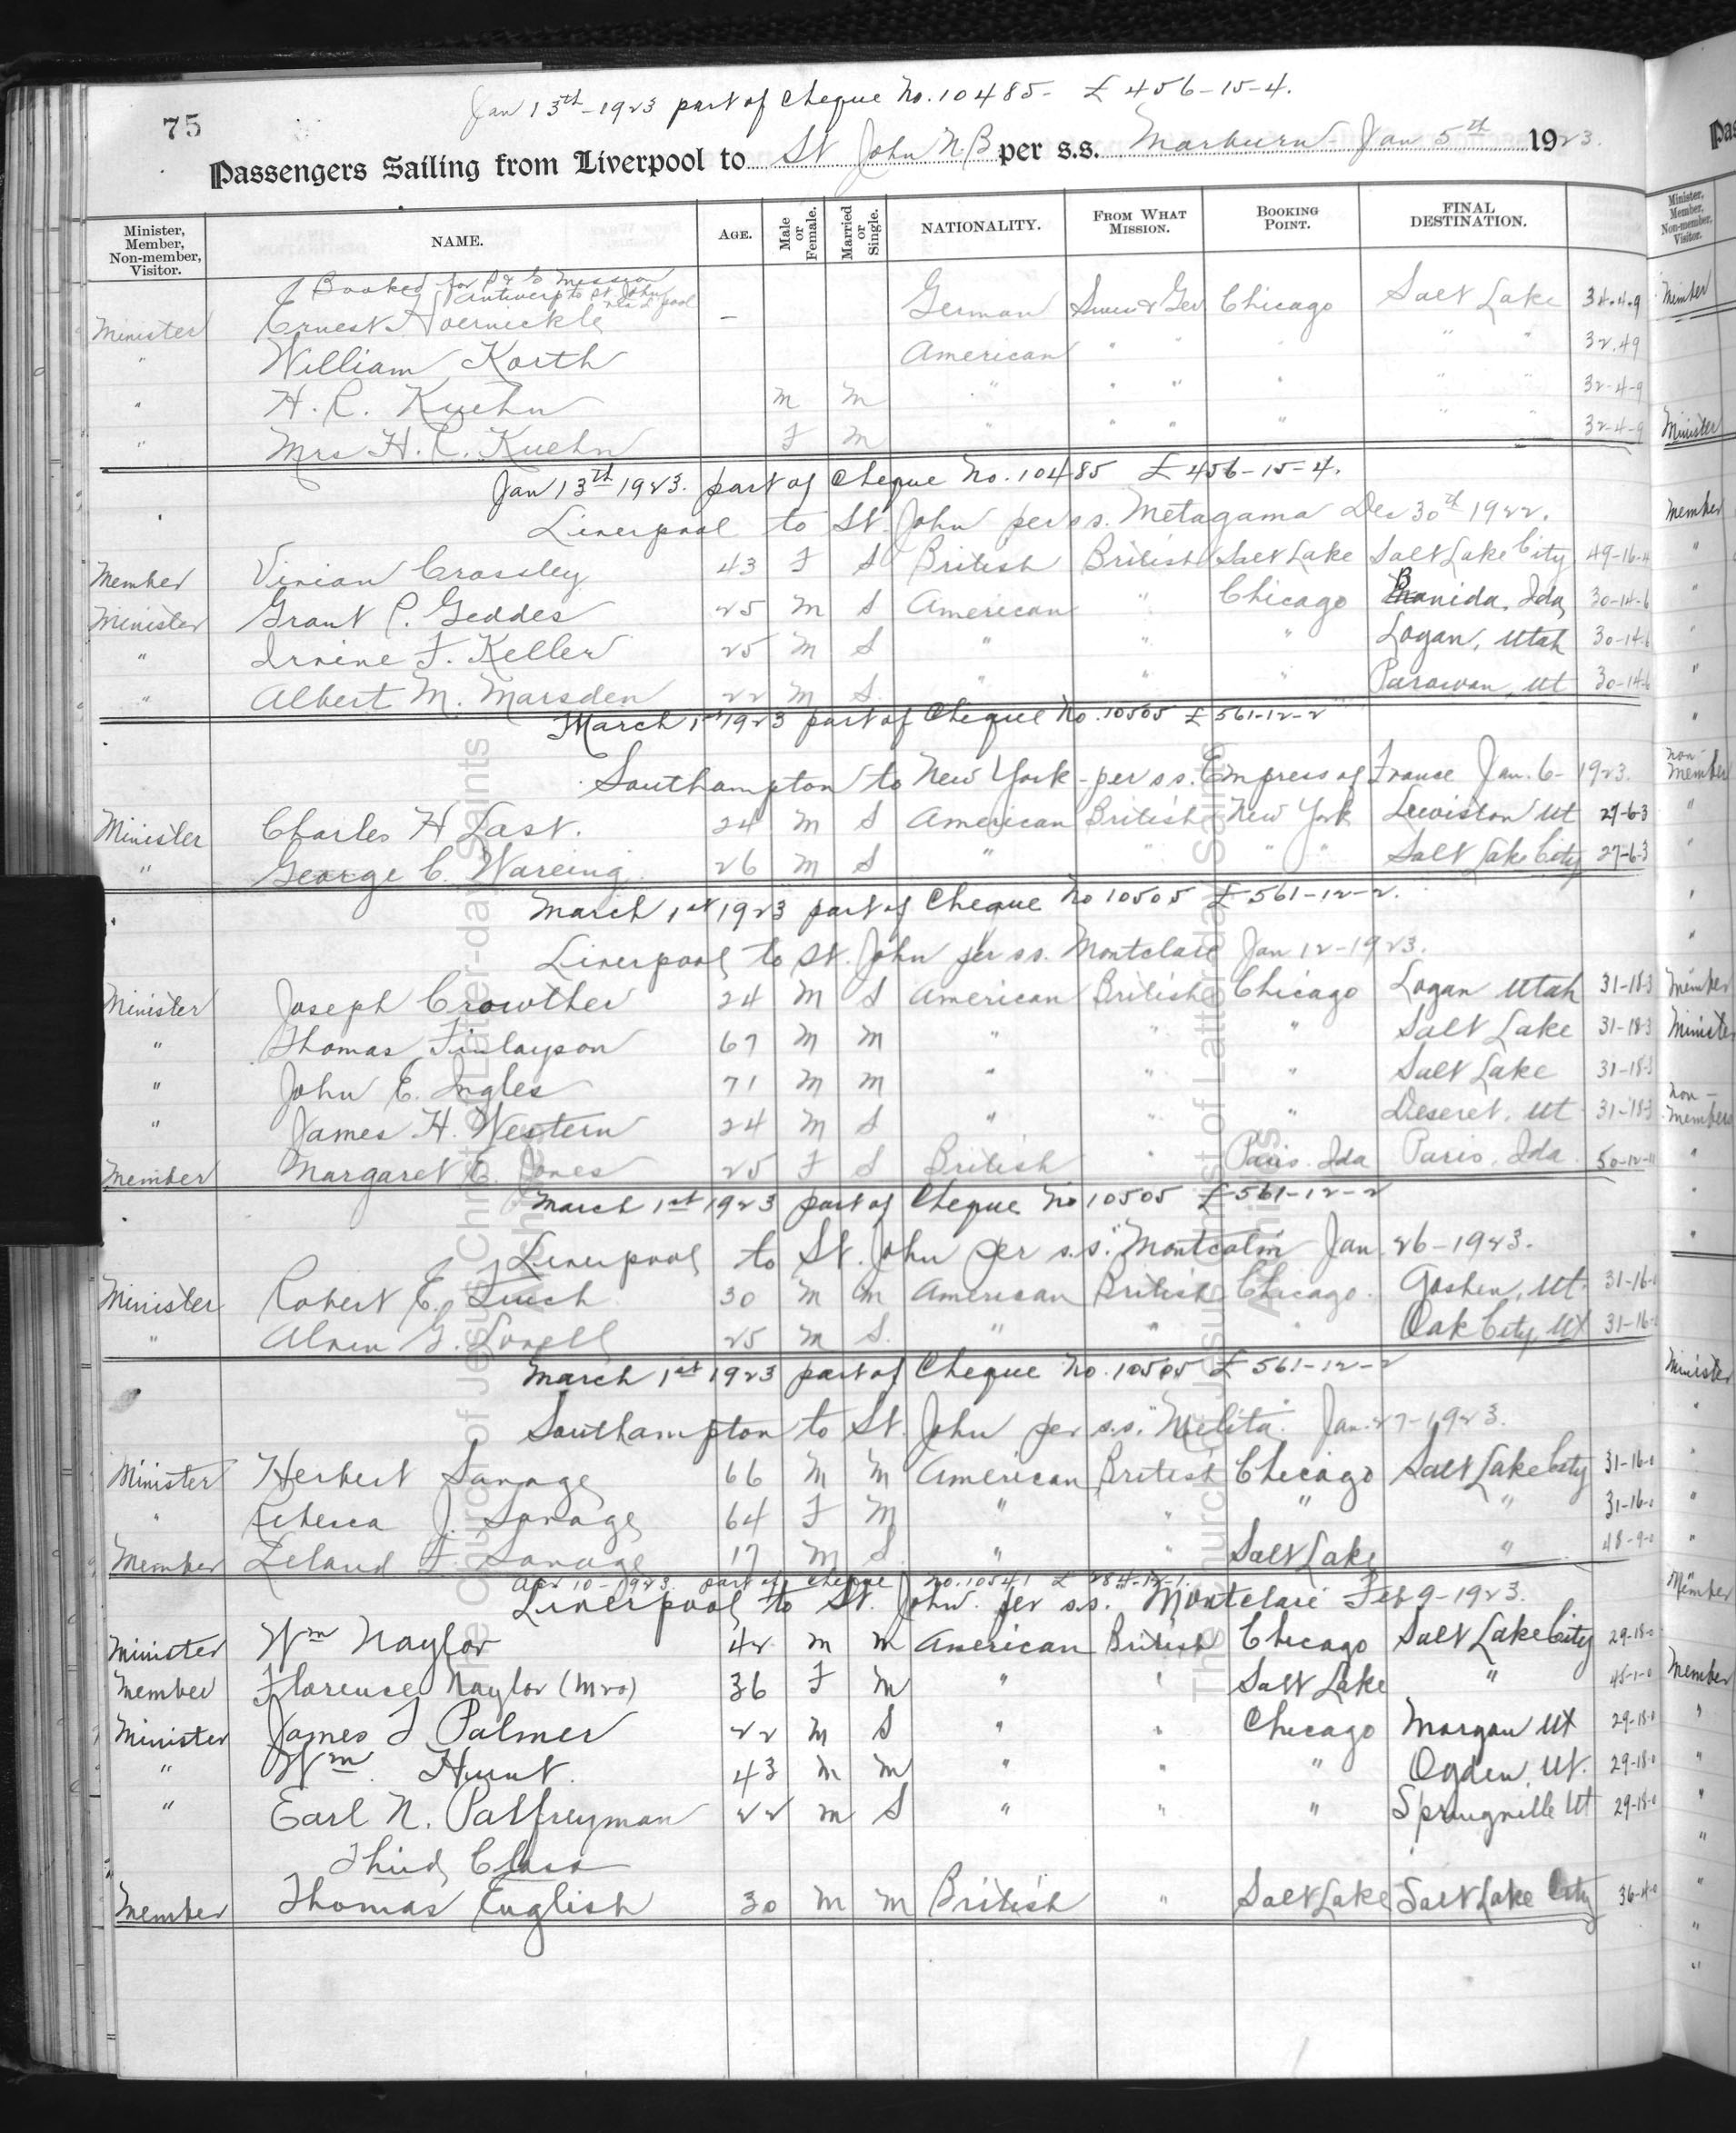 Jan 13th - 1923 part of Cheque No. 10485 - £ 456-15-4.
75
Passengers Sailing from Liverpool to St John N.B per s.s. Marburn - Jan 5th 1923.
Minister, Member, Non-member, Visitor. NAME. AGE. Male or Female. Married or Single. NATIONALITY. FROM WHAT MISSION. BOOKING POINT. FINAL DESTINATION.
Booked for S & G Mission
Antwerp to St John via L'pool
Minister Ernest Hoernickle - German Swiss & Ger Chicago Salt Lake 32-4-9
" William Korth American " " " " " 32.4.9
" H. C. Kuehn m m " " " " " " 32-4-9
" Mrs H. C. Kuehn F m " " " " " " 32-4-9
Jan 13th 1923. part of Cheque No. 10485 £ 456-15-4.
Liverpool to St. John per s.s. Metagama Dec 30th 1922.
Member Vivian Crossley 43 F S British British Salt Lake Salt Lake City 49-16-4
Minister Grant C. Geddes 25 m S American " Chicago Banida, Ida, 30-14-6
" Irvine F. Keller 25 m S " " " Logan, Utah 30-14-6
" Albert M. Marsden 22 m S. " " " Parowan, Ut 30-14-6
March 1st 1923 part of Cheque No. 10505 £ 561-12-2
Southampton to New York - per s.s. Empress of France Jan. 6 - 1923.
Minister Charles H Last. 24 m S American British New York Lewiston Ut 27-6-3
" George C. Wareing. 26 m S " " " " Salt Lake City 27-6-3
March 1st 1923 part of Cheque No 10505 £ 561-12-2.
Liverpool to St. John per s.s. Montclare Jan 12-1923.
Minister Joseph Crowther 24 m S American British Chicago Logan Utah 31-18-3
" Thomas Finlayson 67 m m " " " Salt Lake 31-18-3
" John E. Ingles 71 m m " " " Salt Lake 31-18-3
" James H. Western 24 m S " " " Deseret, Ut 31-18-3
Member Margaret E. Jones 25 F S British " Paris. Ida Paris. Ida 50-12-11
March 1st 1923 part of Cheque No 10505 £ 561-12-2
Liverpool to St. John per s.s. "Montcalm Jan. 26-1923.
Minister Robert E. Finch 30 m m American British Chicago. Goshen, Ut. 31-16-0
" Alvin G. Lovell 25 m S. " " " Oak City, Ut 31-16-0
March 1st 1923 part of Cheque No. 10505 £ 561-12-2
Southampton to St. John per s.s. "Melita" Jan. 27-1923.
Minister Herbert Savage 66 m m American British Chicago Salt Lake City 31-16-0
" Rebecca J. Savage 64 F m " " " " 31-16-0
Member Leland F. Savage 17 m S. " " Salt Lake " 48-9-0
Apr 10-1923. part of cheque no. 10541 £ 284-12-1.
Liverpool to St. John. per s.s. Montclare Feb 9-1923.
Minister Wm Naylor 42 m m American British Chicago Salt Lake City 29-18-0
Member Florence Naylor (Mrs) 36 F m " " Salt Lake " 45-1-0
Minister James F Palmer 22 m S " " Chicago Morgan Ut 29-18-0
" Wm. Hunt. 43 m m " " " Ogden, Ut. 29-18-0
" Earl N. Palfreyman 22 m S " " " Springville Ut 29-18-0
Third Class
Member Thomas English 30 m m British " Salt Lake Salt Lake City 36-4-0
The Church of Jesus Christ of Latter-day Saints
Archives